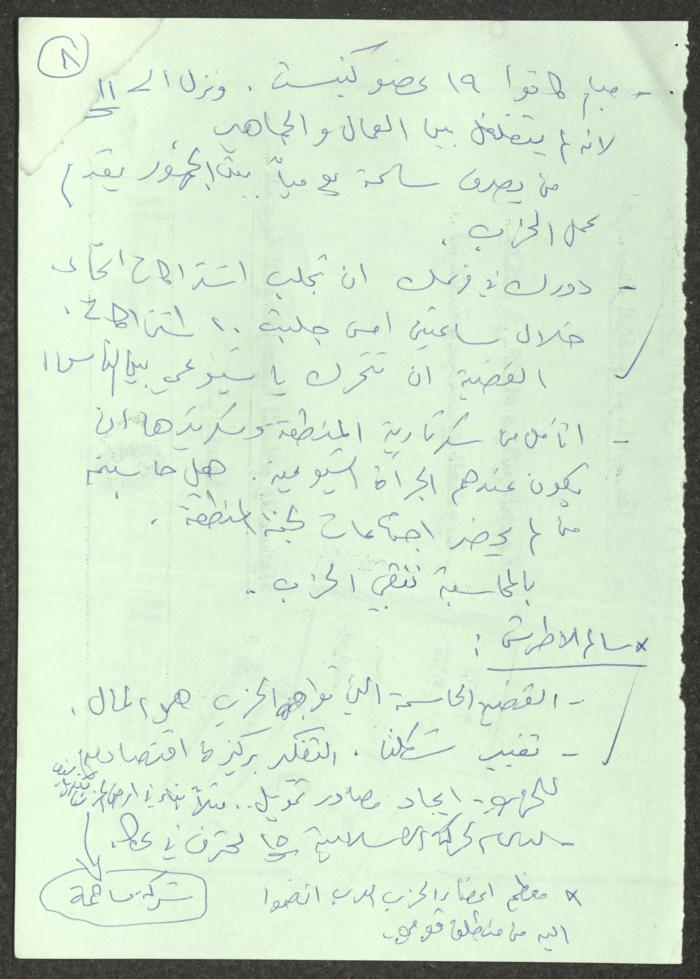 ٨
- مبام كانوا ١٩ عضو كنيست. ونزل الى ١١
لانه لم يتغلغل بين العمال والجماهير
من يصرف ساعة يومياً بين الجمهور يقدم
عمل الحزب.
- دورك في فرعك ان تجلب اشتراكات الاتحاد
خلال ساعتين امس جلبت ٢٠ اشتراكاً.
القضية ان تتحرك يا شيوعي بين الناس!
- اتأمل من سكرتارية المنطقة وسكرتيرها ان
يكون عندهم الجرأة الشيوعية. هل حاسبتم
من لم يحضر اجتماعات لجنة المنطقة.
بالمحاسبة ننقي الحزب..
* سالم الاطرش:
- القضية الحاسمة التي تواجه الحزب هو المال.
- تغيير شكلنا. التفكير بركيزة اقتصادية
ايجاد مصادر تمويل.. مثلاً بناء في ارض
الحركة الاسلامية ١٥ محترف في
شركة مساهمة
* معظم اعضاء الحزب العرب انضموا
اليه من منطلق قومي.